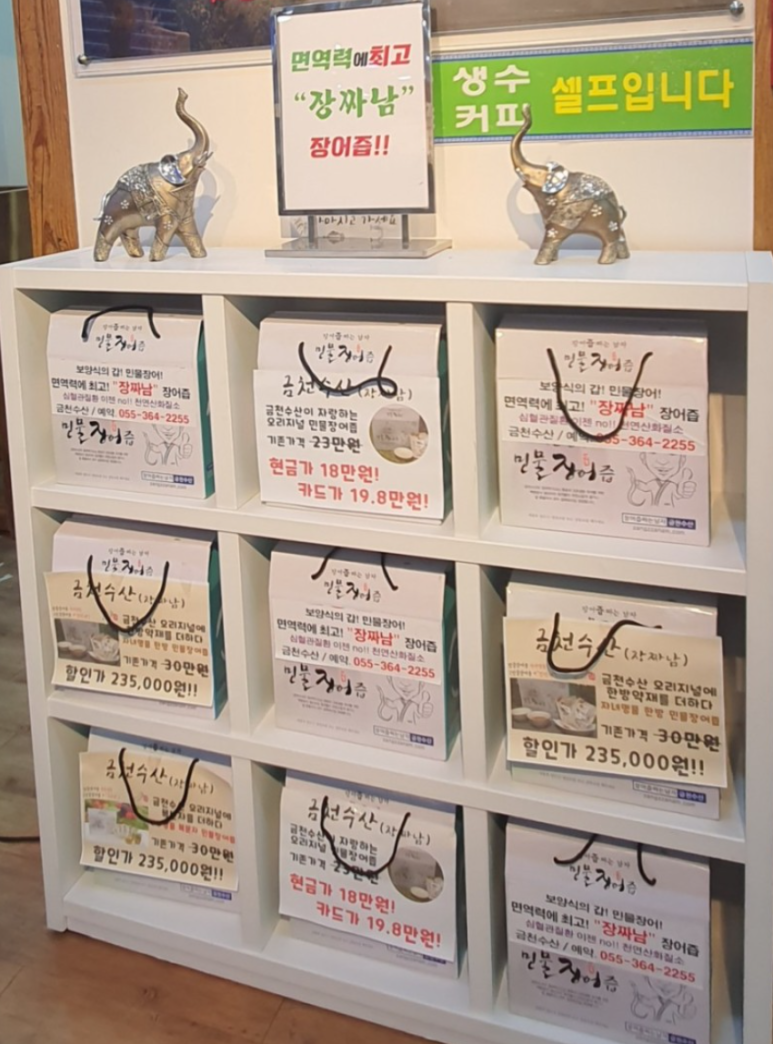 면역력에최고
“장짜남”
장어즙!!
생수
커피
셀프입니다
마시고 가세요
민물장어즙
보양식의 갑! 민물장어!
면역력에 최고! "장짜남" 장어즙
심혈관질환 이젠 no!! 천연산화질소
금천수산 / 예약. 055-364-2255
민물장어즙
금천수산
민물장어즙
금천수산(장짜남)
금천수산이 자랑하는
오리지널 민물장어즙
기존가격 23만원
현금가 18만원!
카드가 19.8만원!
민물장어즙
보양식의 갑! 민물장어!
면역력에 최고! "장짜남" 장어즙
심혈관질환 이젠 no!! 천연산화질소
금천수산 / 예약. 055-364-2255
민물장어즙
장어짜는남자 금천수산
민물장어즙
금천수산(장짜남)
금천수산 오리지널에
한방약재를 더하다
자녀명품 한방 민물장어즙
기존가격 30만원
할인가 235,000원!!
민물장어즙
보양식의 갑! 민물장어!
면역력에 최고! "장짜남" 장어즙
심혈관질환 이젠 no!! 천연산화질소
금천수산 / 예약. 055-364-2255
민물장어즙
금천수산
금천수산(장짜남)
금천수산 오리지널에
한방약재를 더하다
자녀명품 한방 민물장어즙
기존가격 30만원
할인가 235,000원!!
금천수산(장짜남)
금천수산 오리지널에
더하다
민물장어즙
기존가격 30만원
할인가 235,000원!!
금천수산(장짜남)
금천수산이 자랑하는
오리지널 민물장어즙
기존가격 23만원
현금가 18만원!
카드가 19.8만원!
민물장어즙
보양식의 갑! 민물장어!
면역력에 최고! "장짜남" 장어즙
심혈관질환 이젠 no!! 천연산화질소
금천수산 / 예약. 055-364-2255
민물장어즙